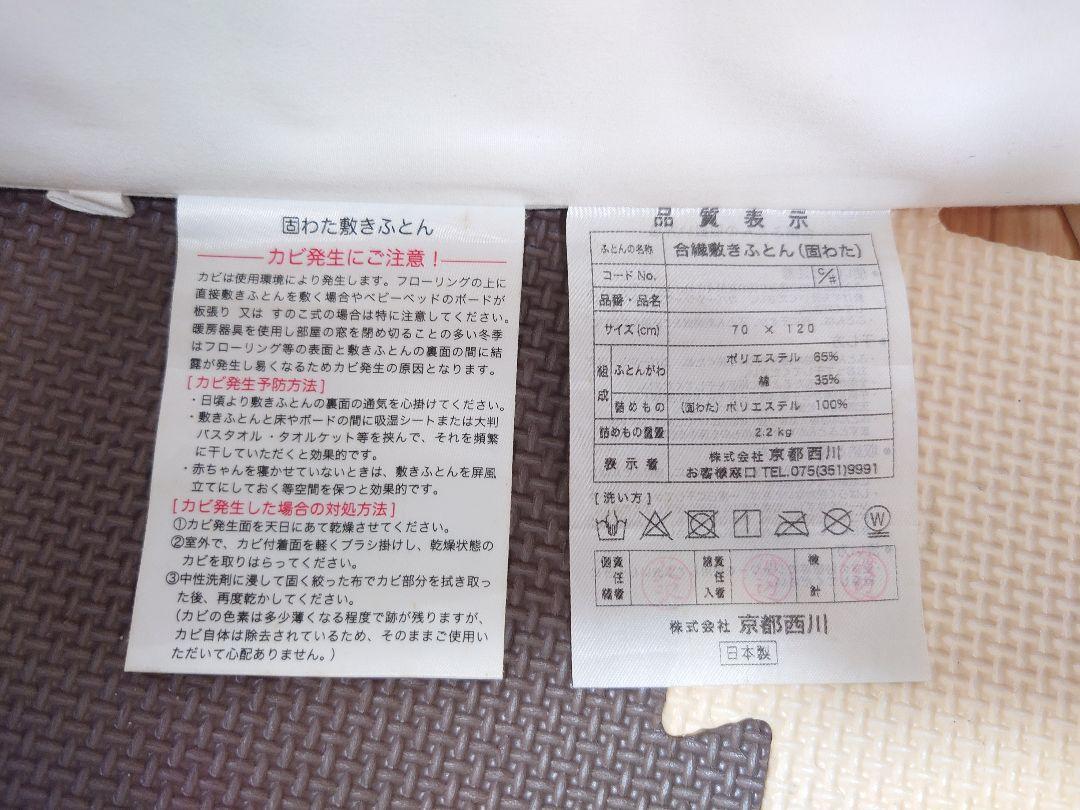 固わた敷きふとん
カビ発生にご注意！
カビは使用環境により発生します。フローリングの上に
直接敷きふとんを敷く場合やベビーベッドのボードが
板張り 又は すのこ式の場合は特に注意してください。
暖房器具を使用し部屋の窓を閉め切ることの多い冬季
はフローリング等の表面と敷きふとんの裏面の間に結
露が発生し易くなるためカビ発生の原因となります。
[カビ発生予防方法]
・日頃より敷きふとんの裏面の通気を心掛けてください。
・敷きふとんと床やボードの間に吸湿シートまたは大判
バスタオル・タオルケット等を挟んで、それを頻繁
に干していただくと効果的です。
・赤ちゃんを寝かせていないときは、敷きふとんを屏風
立てにしておく等空間を保つと効果的です。
[カビ発生した場合の対処方法]
①カビ発生面を天日にあて乾燥させてください。
②室外で、カビ付着面を軽くブラシ掛けし、乾燥状態の
カビを取りはらってください。
③中性洗剤に浸して固く絞った布でカビ部分を拭き取っ
た後、再度乾かしてください。
（カビの色素は多少薄くなる程度で跡が残りますが、
カビ自体は除去されているため、そのままご使用い
ただいて心配ありません。）
品質表示
ふとんの名称 合繊敷きふとん（固わた）
コードNo. C/#
品番・品名
サイズ(cm) 70 × 120
組成 ふとんがわ ポリエステル 65%
綿 35%
詰めもの （固わた）ポリエステル 100%
詰めもの重量 2.2kg
表示者 株式会社 京都西川
お客様窓口 TEL.075(351)9991
[洗い方]
W
側責任縫者 綿責任入者 検計
株式会社 京都西川
日本製